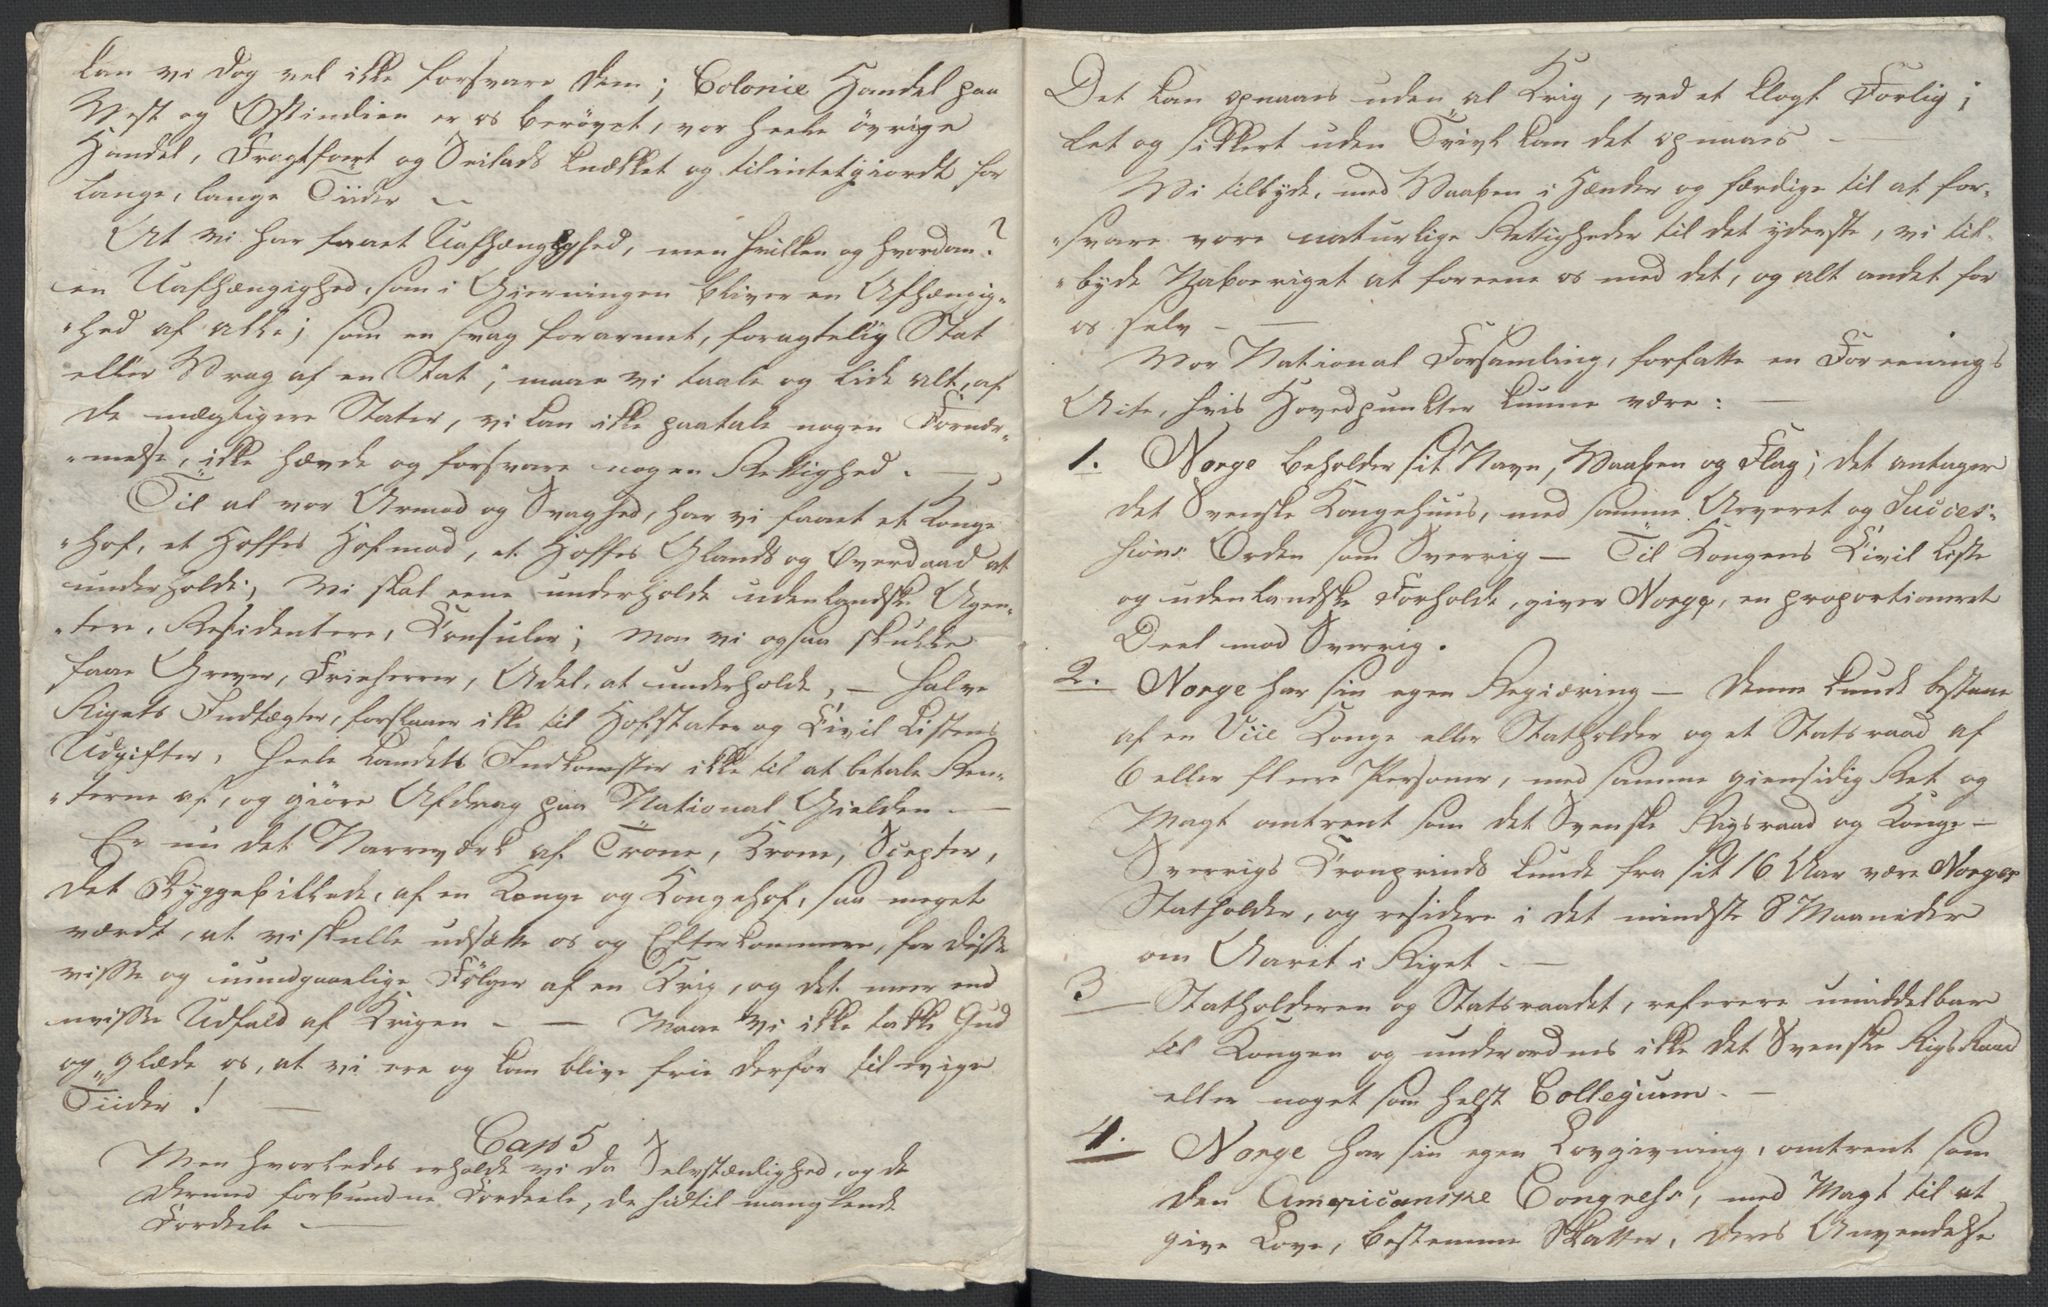 kan vi dog vel ikke forsvare dem; Colonie Handel paa
Vest og Ostindien er os berövet, vor heele övrige
Handel, Fragtfart og Seilads knækket og tilintetgiordt for
lange, lange Tiider —
At vi har faaet Uafhængighed, men hvilken og hvordan?
en Uafhængighed, som i Gierningen bliver en Afhængig-
"hed af alle; som en svag forarmet, foragtelig Stat
eller Vrag af en Stat; maae vi taale og lide alt, af
de mægtigere Stater, vi kan ikke paatale nogen Fornær-
"melse, ikke hævde og forsvare nogen Rettighed. —
Til al vor Armod og Svaghed, har vi faaet et Konge
"hof, et Hoffes Hofmod, et Hoffes Glands og Overdaad at
underholde; Vi skal eene underholde udenlandske Agen-
"tere, Residentere, Konsuler; mon vi ogsaa skulde
faae Grever, Frieherrer, Adel, at underholde, — halve
Rigets Indtægter, forslaaer ikke til Hofstater og Civil Listens
Udgifter, heele Landets Indkomster ikke til at betale Ren-
"terne af, og giöre Afdrag paa National Gielden. —
Er nu det Narreværk af Trone, Krone, Scepter,
det Skyggebillede, af en Konge og Kongehof, saa meget
værdt, at vi skulle udsætte os og Efterkommere, for disse
visse og uundgaaelige Fölger af en Krig, og det meer end
uvisse Udfald af Krigen. — Maae vi ikke takke Gud
og glæde os, at vi ere og kan blive frie derfor til evige
Tiider! —
Cap 5
Men hvorledes erholde vi da Selvstændighed, og de
dermed forbundne Fordeele, de hidtil manglende
Fordeele —
Det kan opnaaes uden al Krig, ved et klogt Forlig;
let og sikkert uden Tvivl kan det opnaaes —
Vi tilbyde, med Vaaben i Hænder og færdige til at for-
"svare vore naturlige Rettigheder til det yderste, vi til-
"byde Naboeriget at foreene os med det, og alt andet for
os selv —
Vor National Forsamling, forfatte en Foreenings
Acte, hvis Hovedpunkter kunne være: —
1. Norge beholder sit Navn, Vaaben og Flag; det antager
det Svenske Kongehuus, med samme Arveret og Succes-
sions Orden som Sverrig — Til Kongens Civil Liste
og udenlandske Forholde, giver Norge, en proportioneret
Deel mod Sverrig.
2. Norge har sin egen Regiæring — Denne kunde bestaae
af en Vice Konge eller Statholder og et Statsraad af
6 eller fleere Personer, med samme giensidig Ret og
Magt omtrent som det Svenske Rigsraad og Konge —
Sverrigs Kronprinds kunde fra sit 16 Aar være Norges
Statholder, og residere i det mindste 8 Maaneder
om Aaret i Riget. —
3 Statholderen og Statsraadet, referere umiddelbar
til Kongen og underordnes ikke det Svenske Rigs Raad
eller noget som helst Collegium. —
4. Norge har sin egen Lovgivning, omtrent som
den Americanske Congress, med Magt til at
give Love, bestemme Skatter, deres Anvendelse